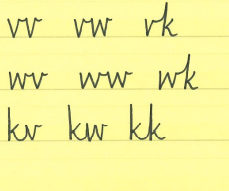 vv vw vk
wv ww wk
kv kw kk